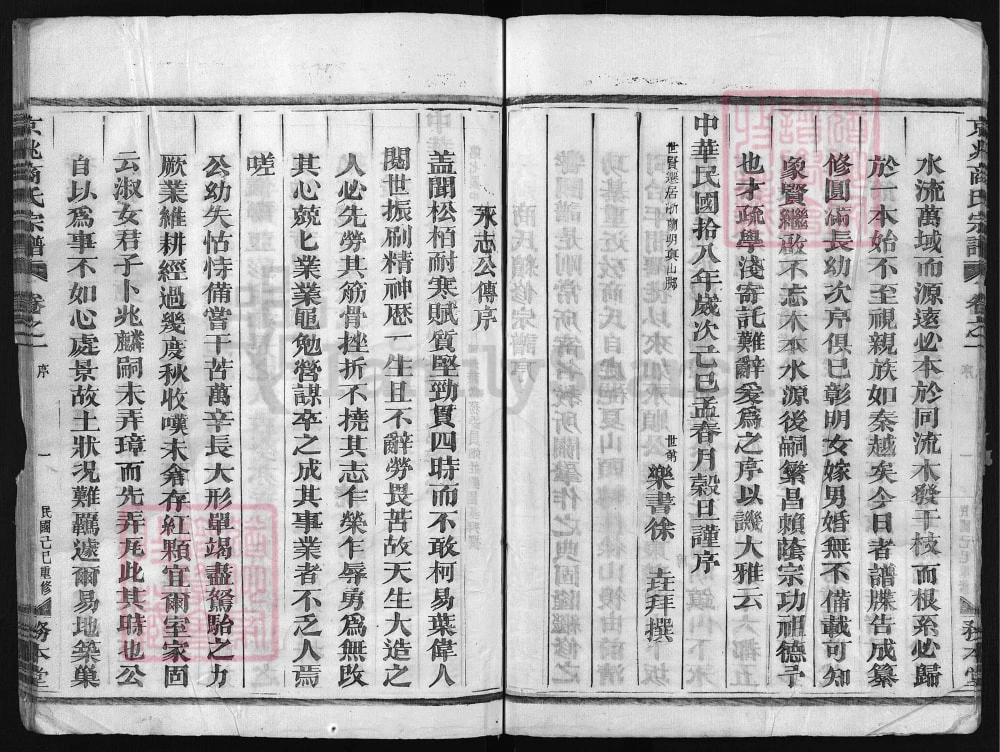 水流萬域而源遠必本於同流木發千枝而根系必歸
於一本始不至視親族如秦越矣今日者譜牒告成纂
修圓滿長幼次序俱已彰明女嫁男婚無不備載可知
象賢繼敢不忘木本水源後嗣繁昌賴蔭宗功祖德予
也才疏學淺寄託難辭爰爲之序以譏大雅云
中華民國拾八年歲次己巳孟春月穀旦謹序
世賢遷居浙蘭明與山鄉
世弟 樂書徐 垚拜撰
京兆商氏宗譜 卷之一 序 一 民國己巳重修 務本堂
永志公傳序
蓋聞松栢耐寒賦質堅勁貫四時而不敢柯易葉偉人
閱世振刷精神歴一生且不辭勞畏苦故天生大造之
人必先勞其筋骨挫折不撓其志乍榮乍辱勇爲無改
其心兢匕業業黽勉營謀卒之成其事業者不乏人焉
嗟
公幼失怙恃備嘗千苦萬辛長大形單竭盡駑駘之力
厥業維耕經過幾度秋收嘆未畬存紅顆宜爾室家固
云淑女君子卜兆麟嗣未弄璋而先弄瓦此其時也公
自以爲事不如心處景故土狀况難覊遽爾易地築巢
京兆商氏宗譜 卷之一 序 一 民國己巳重修 務本堂